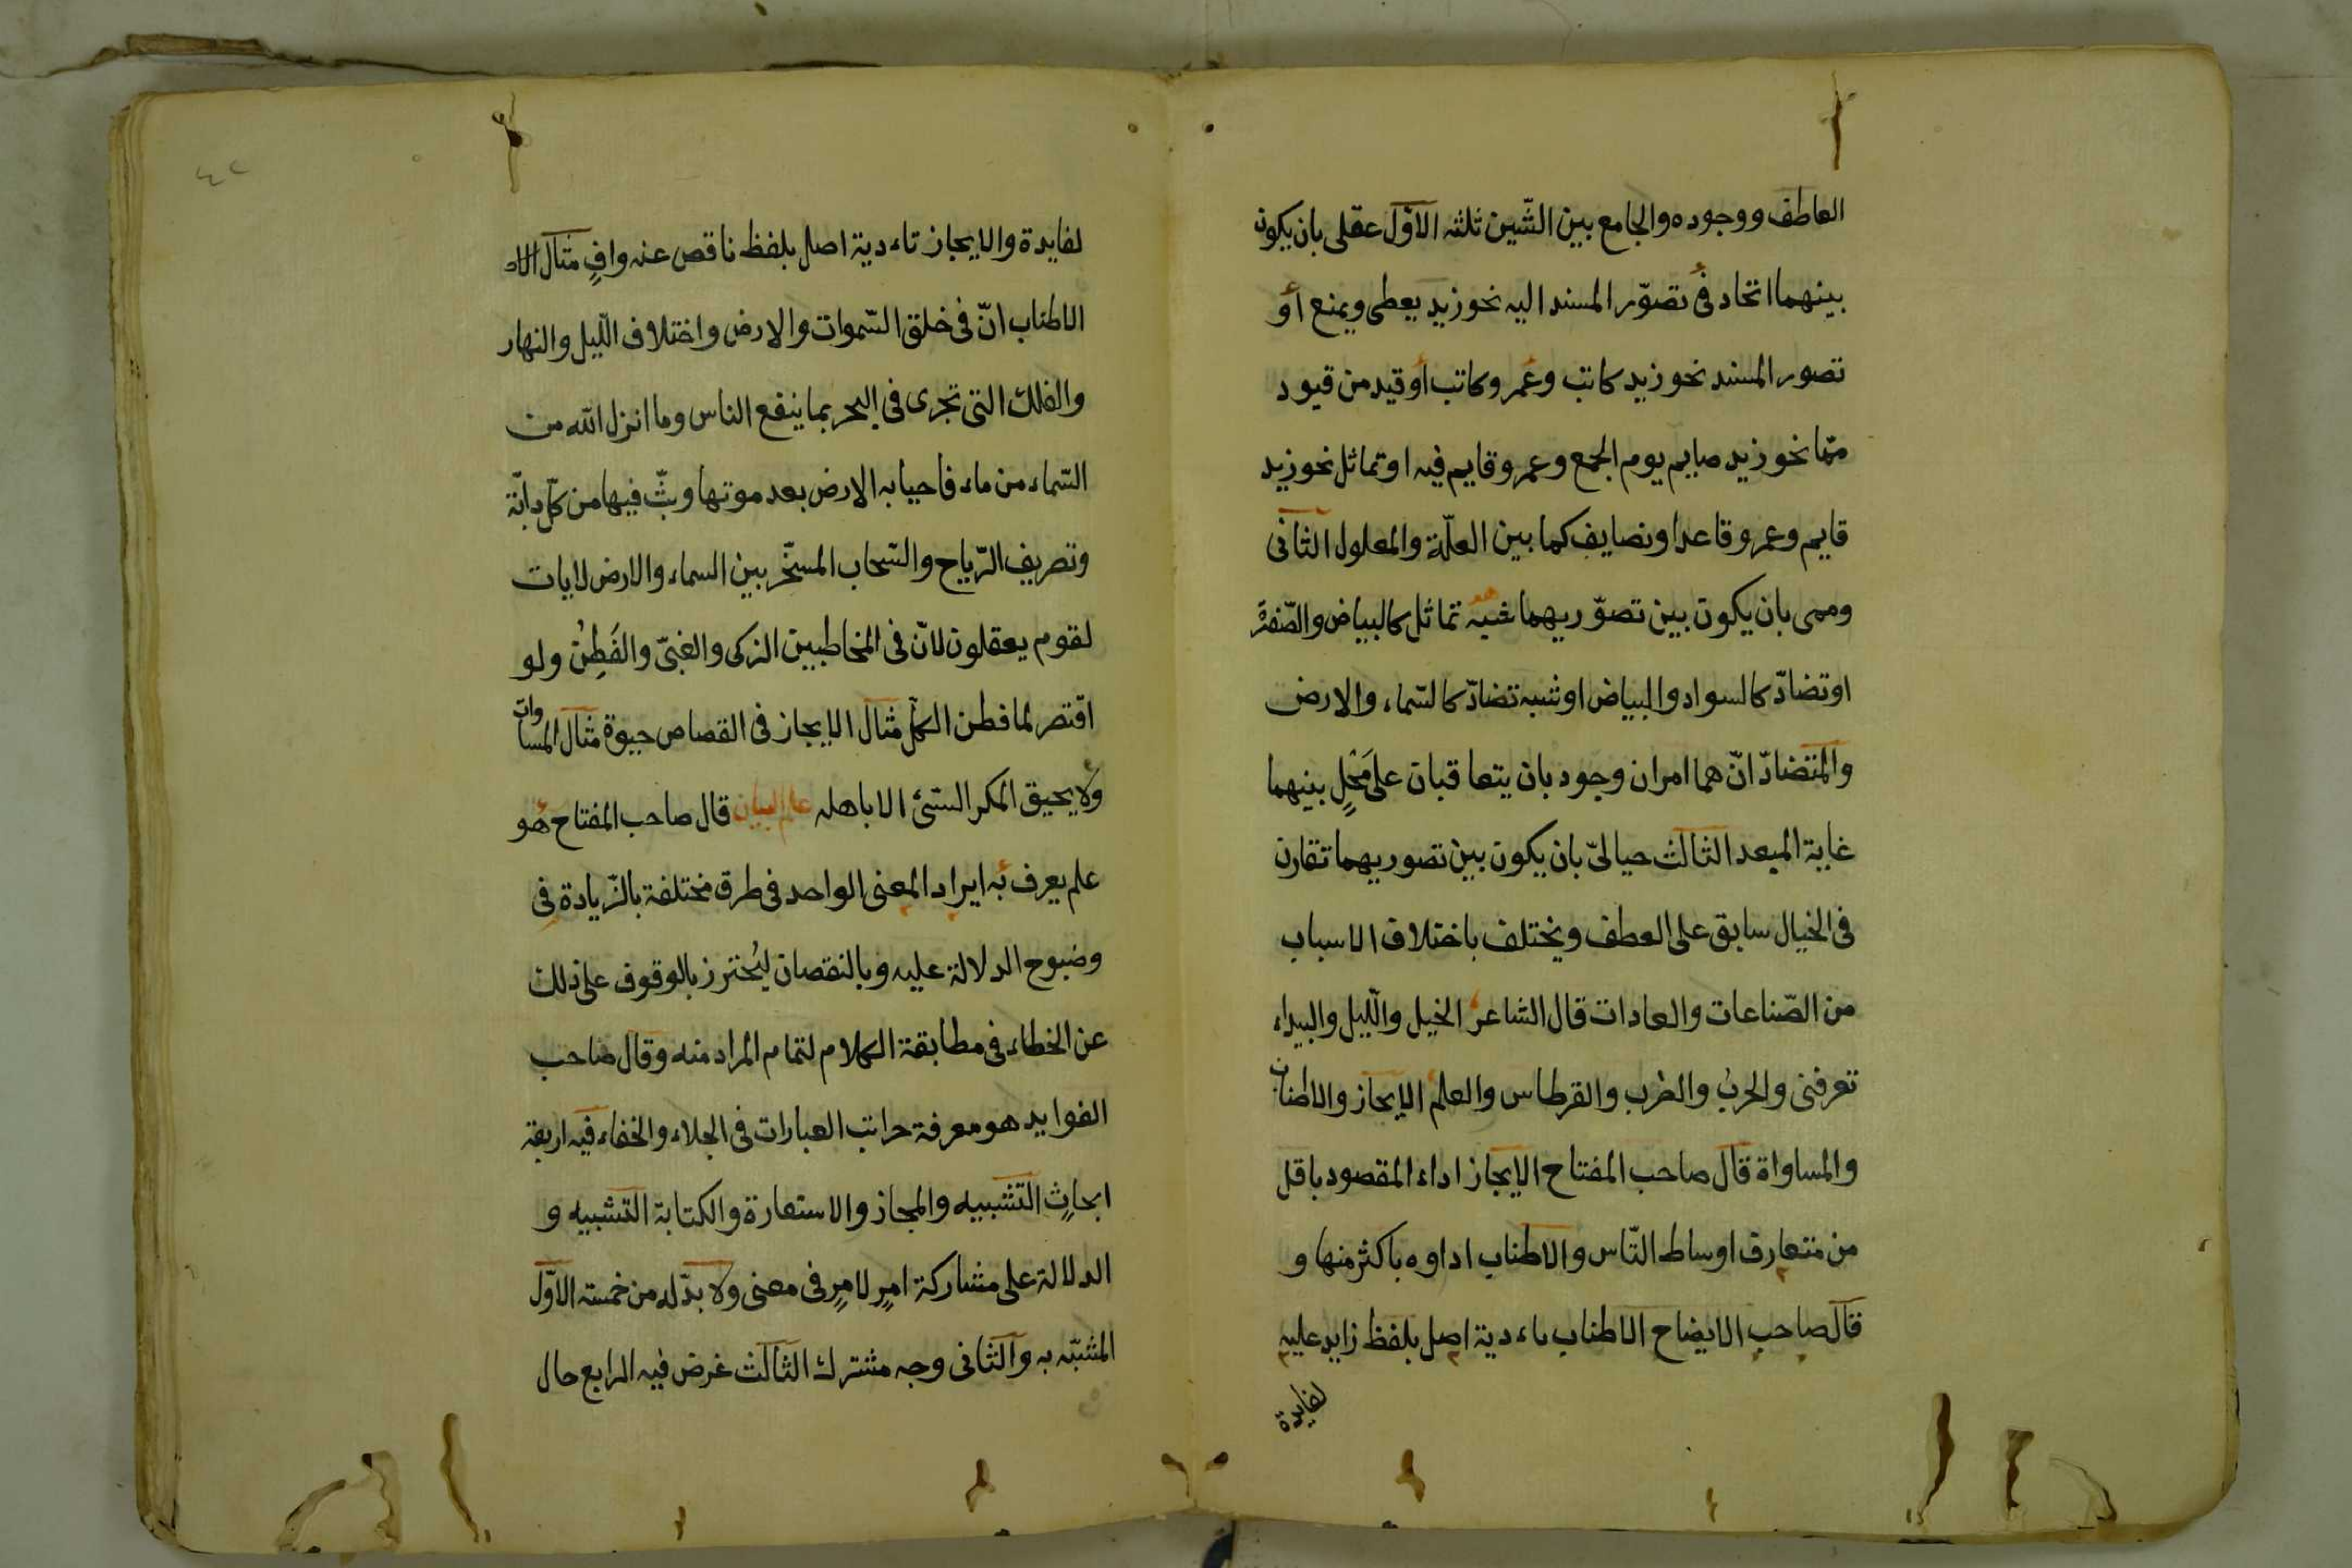 العاطف ووجوده والجامع بين الشّين ثلثه الاوّل عقلى بان يكون
بينهما اتحاد فى تصوّر المسند اليه نحو زيد يعطى ويمنع أو
تصور المسند نحو زيد كاتب وعمر وكاتب أو قيد من قيود
ممّا نحو زيد صايم يوم الجمع وعمر وقايم فيه او تماثل نحو زيد
قايم وعمر وقاعد او نصايف كما بين العلّة والمعلول الثانى
وممى بان يكون بين تصوّريهما شبه تماثل كالبياض والصّفرة
او تضادّ كالسواد والبياض او شبه تضادّ كالسّماء والارض
والمتضادّ انّ هما امران وجود بان يتعاقبان على مَحْلٍ بينهما
غاية المبعد الثالث حيالىّ بان يكون بين تصوريهما تقارن
فى الخيال سابق على العطف ويختلف باختلاف الاسباب
من الصّناعات والعادات قال الشاعر الخيل واللّيل والبيداء
تعرفنى والحربُ والضرب والقرطاس والعلم الايجاز والاطناب
والمساواة قال صاحب المفتاح الايجاز اداء المقصود باقل
من متعارف اوساط النّاس والاطناب اداوه باكثر منها و
قال صاحب الايضاح الاطناب باءدية اصل بلفظ زايد عليه
لفايدة
٤٢
لفايدة والايجاز تاءدية اصل بلفظ ناقص عنه وافٍ مثال الاد
الاطناب انّ فى خلق السّموات والارض واختلاف اللّيل والنهار
والفلك التى تجرى فى البحر بما ينفع الناس وما انزل الله من
السّماء من ماء فاحيا به الارض بعد موتها وبثّ فيها من كلّ دابّة
وتصريف الرّياح والسّحاب المسخّر بين السماء والارض لايات
لقوم يعقلون لانّ فى المخاطبين الزكى والغبىّ والفَطِنُ ولو
اقتصر لما فطن الكل مثال الايجاز فى القصاص حيوة مثال المساوات
ولا يحيق المكر السّئ الا باهله علم البيان قال صاحب المفتاح هُو
علم يعرف به ايراد المعنى الواحد فى طرق مختلفة بالزّيادة فى
وضوح الدلالة عليه وبالنقصان ليُحترز بالوقوف على ذلك
عن الخطاء فى مطابقة الكلام لتمام المراد منه وقال صاحب
الفوايد هو معرفة مراتب العبارات فى الجلاء والخفاء فيه اربعة
ابحاثٍ التّشبيه والمجاز والاستعارة والكتابة التشبيه و
الدلالة على مشاركة امرٍ لامرٍ فى معنى ولا بدّله من خمسة الاوّل
المشبّه به والثانى وجه مشترك الثالث غرض فيه الرابع حال